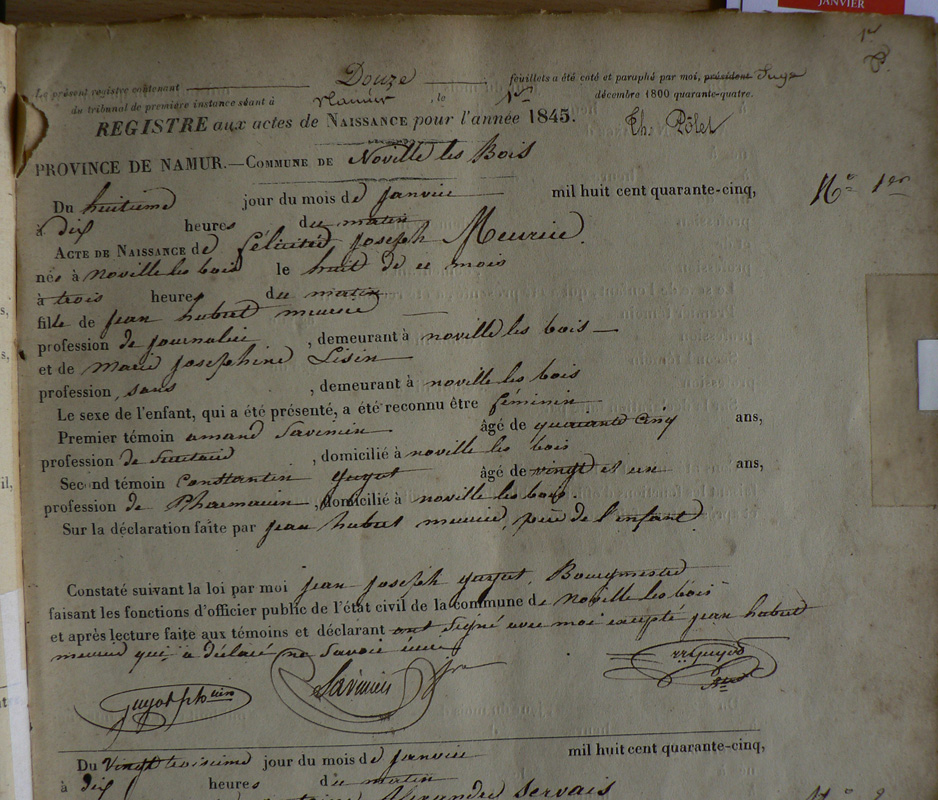 JANVIER
1er
P.
Le présent registre contenant Douze feuillets a été coté et paraphé par moi, président Juge
du tribunal de première instance séant à Namur, le 1er décembre 1800 quarante-quatre.
REGISTRE aux actes de NAISSANCE pour l'année 1845.
Th. Pôlet
PROVINCE DE NAMUR.—COMMUNE DE Noville les Bois
Du huitième jour du mois de janvier mil huit cent quarante-cinq,
N° 1er
à dix heures du matin
ACTE DE NAISSANCE de félicité joseph Meurice.
née à noville les bois le huit de ce mois
à trois heures du matin
fille de jean hubert meurice
profession de journalier, demeurant à noville les bois —
et de marie josephine Lisin
profession, sans, demeurant à noville les bois
Le sexe de l'enfant, qui a été présenté, a été reconnu être feminin
Premier témoin amand Savinien âgé de quarante cinq ans,
profession de Secretaire, domicilié à noville les bois
Second témoin Constantin guyot âgé de vingt et un ans,
profession de Pharmacien, domicilié à noville les bois.
Sur la déclaration faite par jean hubert meurice, père de l'enfant
Constaté suivant la loi par moi jean joseph guyot, Bourgmestre
faisant les fonctions d'officier public de l'état civil de la commune de noville les bois
et après lecture faite aux témoins et déclarant ont signé avec moi excepté jean hubert
meurice qui a déclaré ne savoir écrire
Guyot phcien
Savinien
Guyot
Du Vingt troisieme jour du mois de janvier mil huit cent quarante-cinq,
à dix heures du matin
N° 2
Alexandre Servais